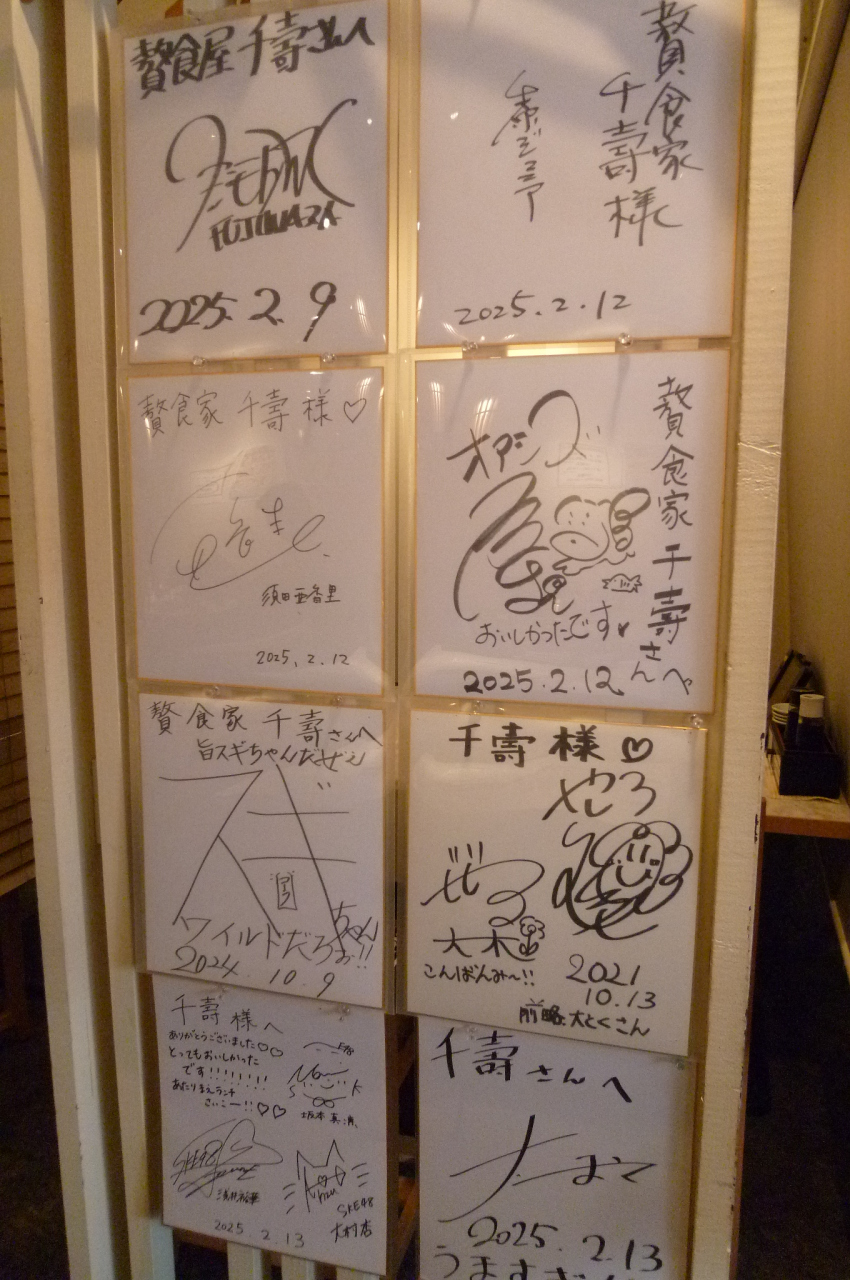 贅食屋 千壽さんへ
FUJIWARA
2025. 2. 9
贅食家
千壽様
2025. 2. 12
贅食家 千壽 様♡
須田亜香里
2025. 2. 12
贅食家 千壽さんへ
オアシズ
おいしかったです♥
2025. 2. 12
贅食家 千壽さんへ
旨スギちゃんだぜぇ
スギちゃん
ワイルドだろぉ!!
2024. 10. 9
千壽 様♡
やしろ
大木
こんばんみ〜!!
2021
10.13
前略、大とくさん
千壽様へ
ありがとうございました♡♡
とってもおいしかった
です!!!!!!!!
あたりまえランチ
さいこー!!♡♡
坂本真凛
SKE48
大村杏
2025. 2. 13
千壽さんへ
2025. 2. 13